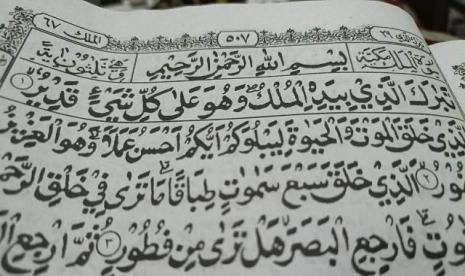 ٢٩ ٥٠٧ الملك ٦٧
الملك مكية بِسْمِ اللهِ الرَّحْمٰنِ الرَّحِيْمِ ثلثون اية
تَبٰرَكَ الَّذِيْ بِيَدِهِ الْمُلْكُ وَهُوَ عَلٰى كُلِّ شَيْءٍ قَدِيْرٌ ١
الَّذِيْ خَلَقَ الْمَوْتَ وَالْحَيٰوةَ لِيَبْلُوَكُمْ اَيُّكُمْ اَحْسَنُ عَمَلًا ؕ وَهُوَ الْعَزِيْزُ
ُوْرُ ٢ الَّذِيْ خَلَقَ سَبْعَ سَمٰوٰتٍ طِبَاقًا ؕ مَا تَرٰى فِيْ خَلْقِ الرَّحْم
وُتٍ ؕ فَارْجِعِ الْبَصَرَ هَلْ تَرٰى مِنْ فُطُوْرٍ ٣ ثُمَّ ارْجِعِ